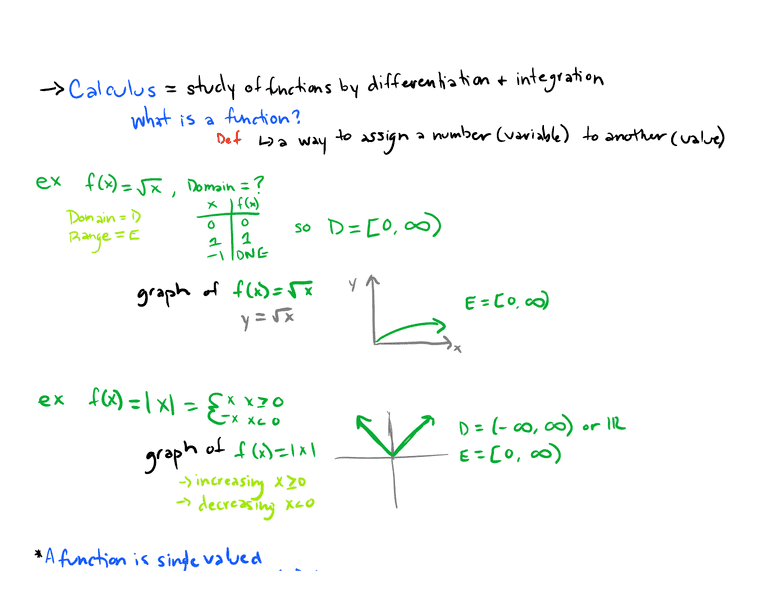 → Calculus = study of functions by differentiation + integration
What is a function?
Def ↳ a way to assign a number (variable) to another (value)
ex f(x) = √x , Domain = ?
Domain = D
Range = E
x | f(x)
0 | 0
1 | 1
-1 | DNE
so D = [0, ∞)
graph of f(x) = √x
y = √x
y
x
E = [0, ∞)
ex f(x) = |x| = { x x ≥ 0
-x x < 0
graph of f(x) = |x|
→ increasing x ≥ 0
→ decreasing x < 0
D = (-∞, ∞) or ℝ
E = [0, ∞)
*A function is single valued